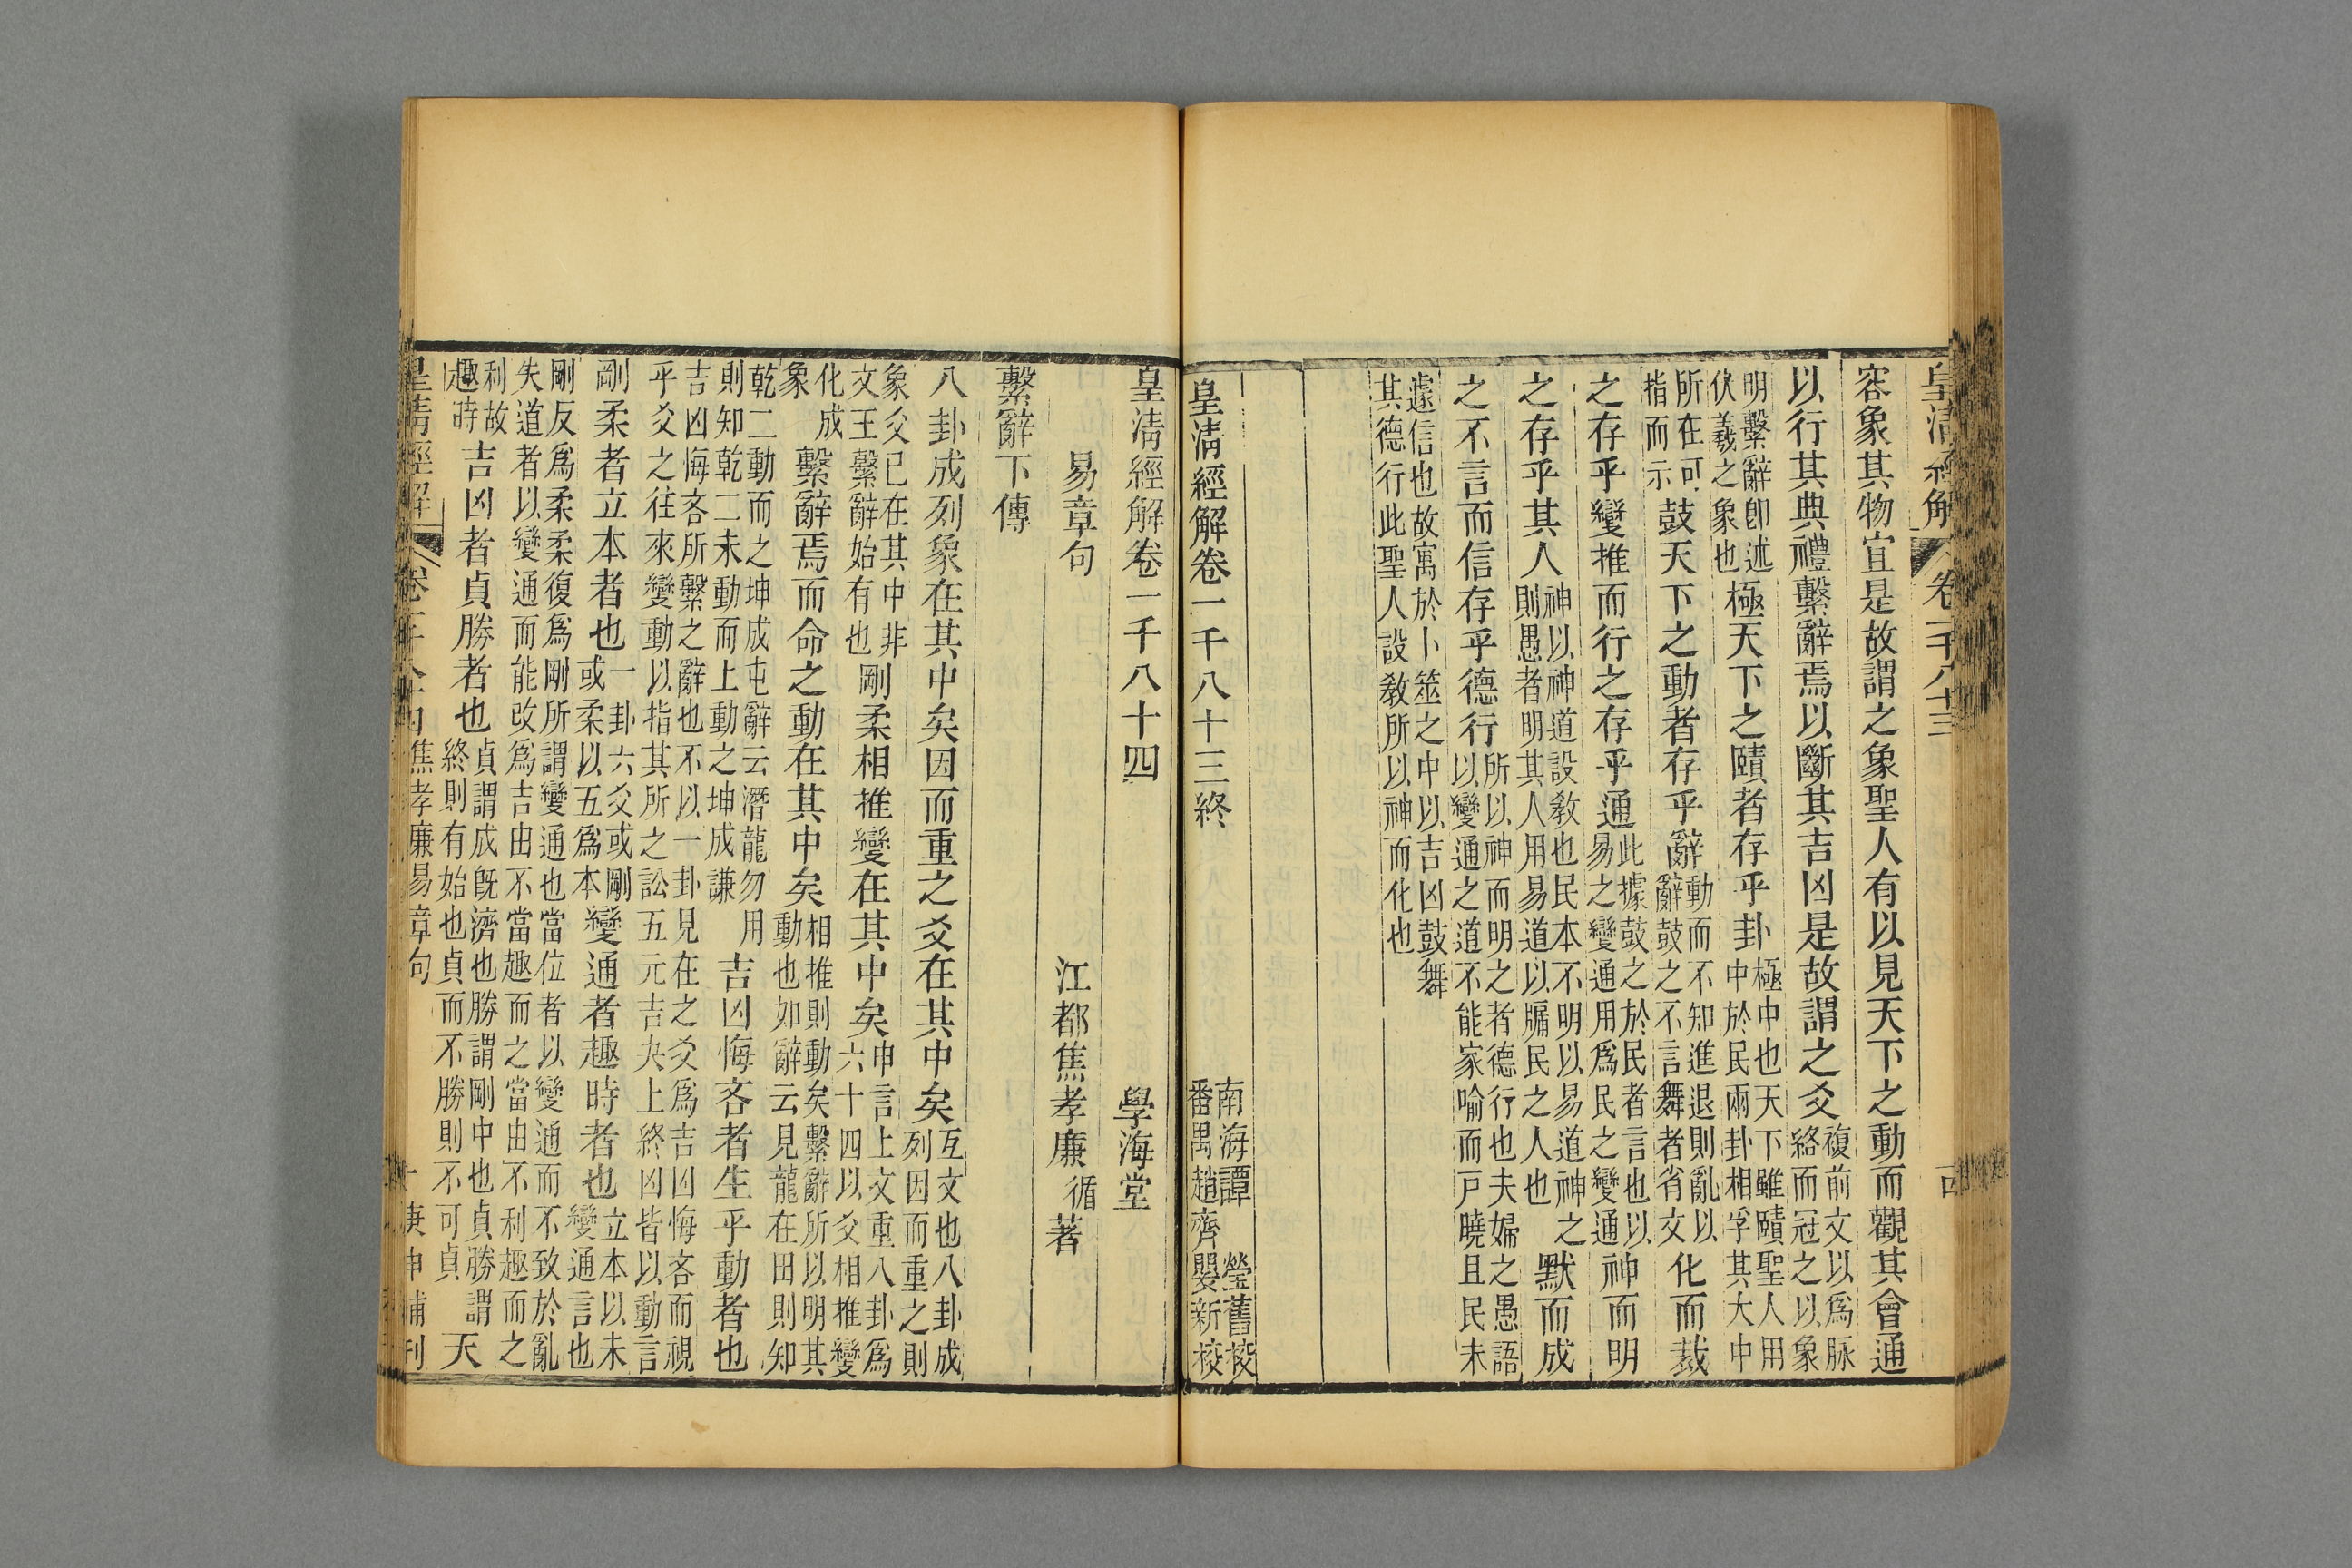 皇清經解 卷一千八十三
容象其物宜是故謂之象聖人有以見天下之動而觀其會通
以行其典禮繫辭焉以斷其吉凶是故謂之爻複前文以爲脉絡而冠之以象
明繫辭卽述伏羲之象也極天下之賾者存乎卦極中也天下雖賾聖人用中於民兩卦相孚其大中
所在可指而示鼓天下之動者存乎辭動而不知進退則亂以辭鼓之不言舞者省文化而裁
之存乎變推而行之存乎通此據鼓之於民者言也以易之變通用爲民之變通神而明
之存乎其人神以神道設敎也民本不明以易道神之則愚者明其人用易道以牖民之人也默而成
之不言而信存乎德行所以神而明之者德行也夫婦之愚語以變通之道不能家喻而戸曉且民未
遽信也故寓於卜筮之中以吉凶鼓舞其德行此聖人設敎所以神而化也
皇清經解卷一千八十三終
南海譚瑩舊校
番禺趙齊嬰新校
皇清經解卷一千八十四 學海堂
易章句 江都焦孝廉循著
繫辭下傳
八卦成列象在其中矣因而重之爻在其中矣互文也八卦成列因而重之則
象爻已在其中非文王繫辭始有也剛柔相推變在其中矣申言上文重八卦爲六十四以爻相推變
化成象繫辭焉而命之動在其中矣相推則動矣繫辭所以明其動也如辭云見龍在田則知
乾二動而之坤成屯辭云潛龍勿用則知乾二未動而上動之坤成謙吉凶悔吝者生乎動者也
吉凶悔吝所繫之辭也不以一卦見在之爻爲吉凶悔吝而視乎爻之往來變動以指其所之訟五元吉夬上終凶皆以動言
剛柔者立本者也一卦六爻或剛或柔以五爲本變通者趣時者也立本以未變通言也
剛反爲柔柔復爲剛所謂變通也當位者以變通而不致於亂失道者以變通而能改爲吉由不當趣而之當由不利趣而之
利故趣時吉凶者貞勝者也貞謂成旣濟也勝謂剛中也貞勝謂終則有始也貞而不勝則不可貞天
皇清經解 焦孝廉易章句 一 庚申補刊